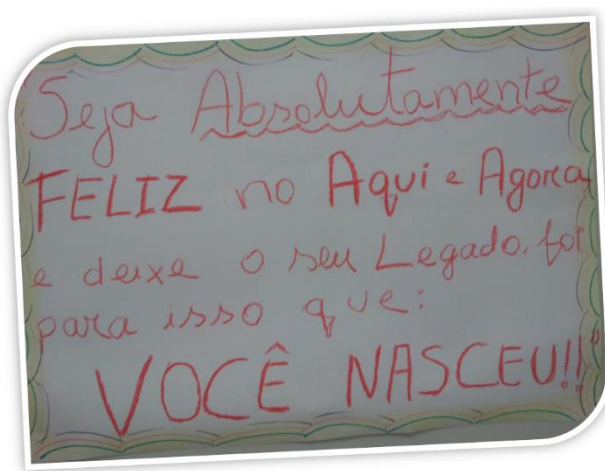 Seja Absolutamente
FELIZ no Aqui e Agora
e deixe o seu Legado. foi
para isso que:
VOCÊ NASCEU!!"